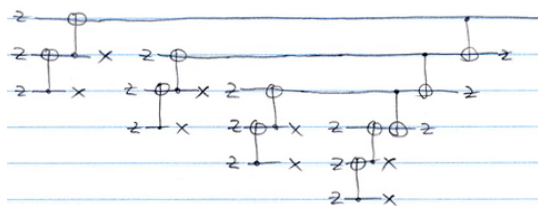 z
z x z z
z x z x z z
z x z x z z
z x z x
z x